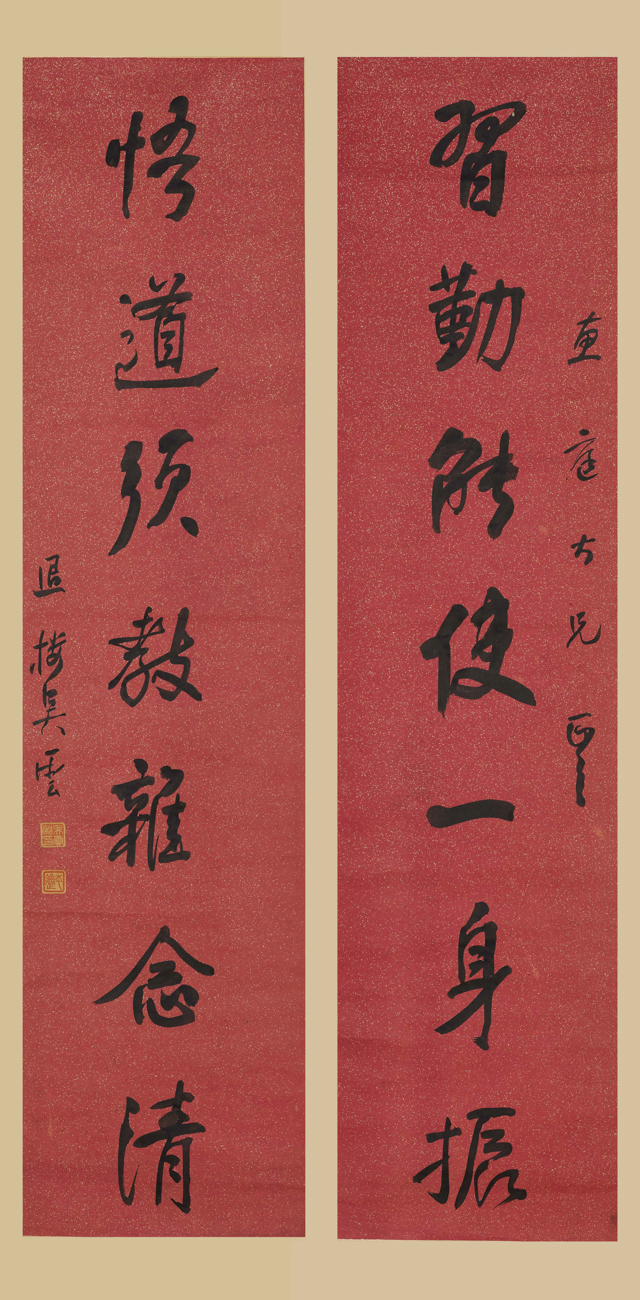 直庭大兄正之
習勤能使一身振
悟道須教雜念清
退樓吳雲